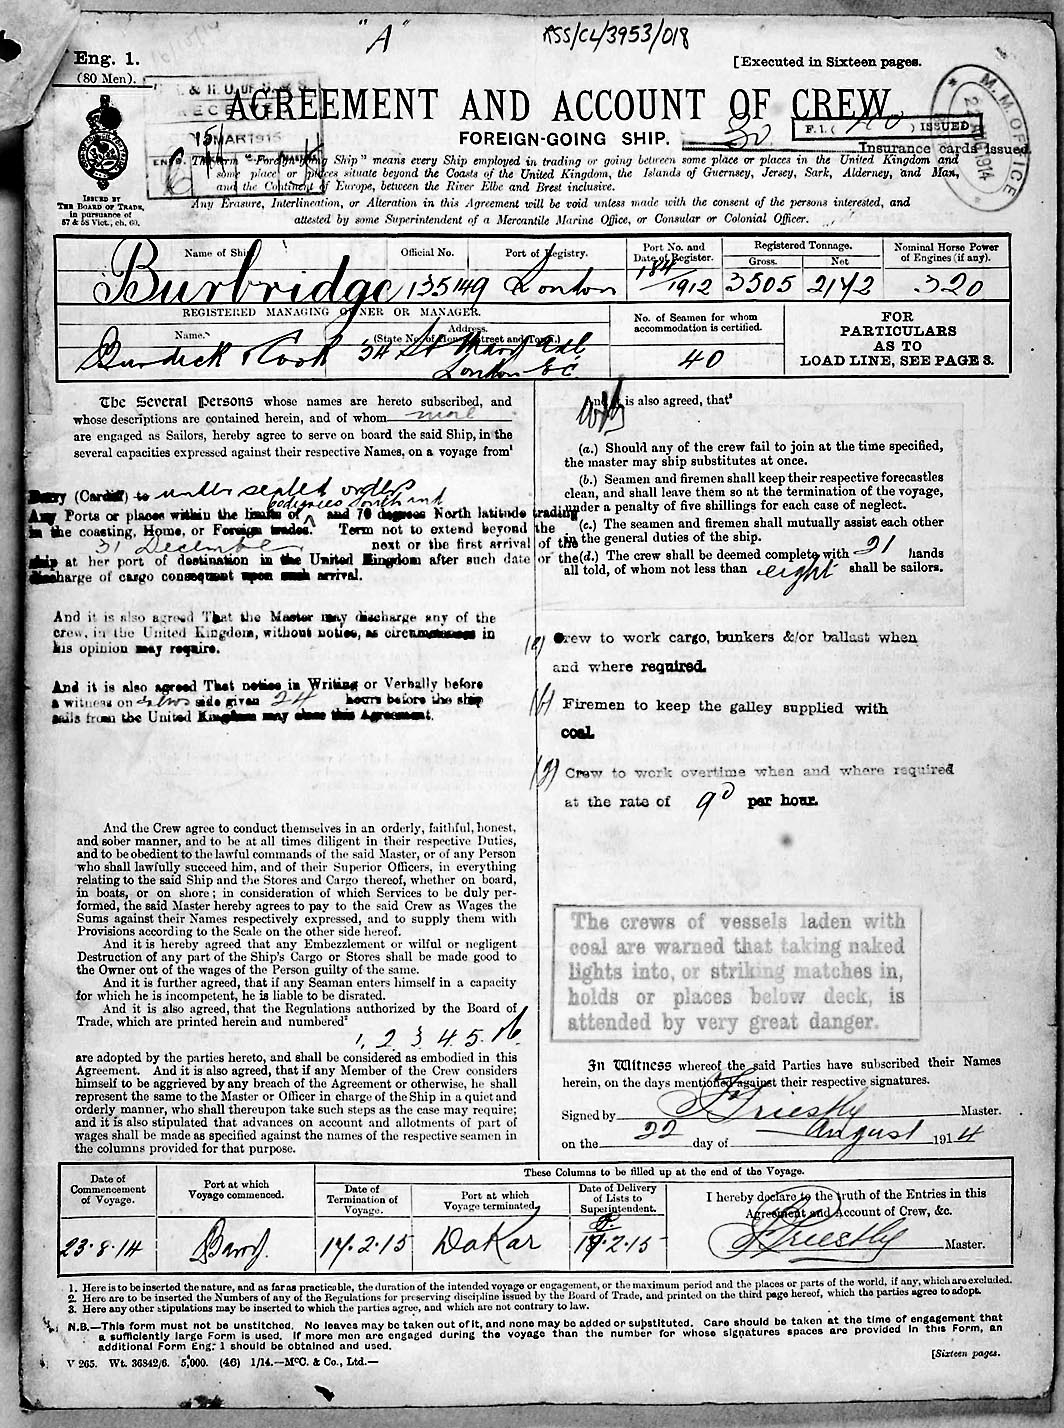 "A"
ASS/CL/3953/018
Eng. 1.
(80 Men).
[Executed in Sixteen pages.
AGREEMENT AND ACCOUNT OF CREW
FOREIGN-GOING SHIP.
MAR 1915
30
F.1. ( 40 ) ISSUED
Insurance cards issued
M. M. OFFICE
1914
ISSUED BY
THE BOARD OF TRADE,
in pursuance of
57 & 58 Vict., ch. 60.
The term "Foreign-going Ship" means every Ship employed in trading or going between some place or places in the United Kingdom and
some place or places situate beyond the Coasts of the United Kingdom, the Islands of Guernsey, Jersey, Sark, Alderney, and Man,
and the Continent of Europe, between the River Elbe and Brest inclusive.
Any Erasure, Interlineation, or Alteration in this Agreement will be void unless made with the consent of the persons interested, and
attested by some Superintendent of a Mercantile Marine Office, or Consular or Colonial Officer.
Name of Ship.
Official No.
Port of Registry.
Port No. and
Date of Register.
Registered Tonnage.
Gross.
Net
Nominal Horse Power
of Engines (if any).
Burbridge
135149
London
184/1912
3505
2142
320
REGISTERED MANAGING OWNER OR MANAGER.
Name.
Address.
(State No. of House, Street and Town.)
No. of Seamen for whom
accommodation is certified.
FOR
PARTICULARS
AS TO
LOAD LINE, SEE PAGE 3.
Burdick & Cook
34 St Mary Axe
London E.C.
40
The Several Persons whose names are hereto subscribed, and
whose descriptions are contained herein, and of whom
are engaged as Sailors, hereby agree to serve on board the said Ship, in the
several capacities expressed against their respective Names, on a voyage from¹
Barry (Cardiff) to under sealed orders
Any Ports or places within the limits of and 70 degrees North latitude trading
in the coasting, Home, or Foreign trades. Term not to extend beyond the
31 December next or the first arrival of the
ship at her port of destination in the United Kingdom after such date or the
discharge of cargo consequent upon such arrival.
And it is also agreed That the Master may discharge any of the
crew, in the United Kingdom, without notice, as circumstances in
his opinion may require.
And it is also agreed That notice in Writing or Verbally before
a witness on either side given 24 hours before the ship
sails from the United Kingdom may close this Agreement.
And the Crew agree to conduct themselves in an orderly, faithful, honest,
and sober manner, and to be at all times diligent in their respective Duties,
and to be obedient to the lawful commands of the said Master, or of any Person
who shall lawfully succeed him, and of their Superior Officers, in everything
relating to the said Ship and the Stores and Cargo thereof, whether on board,
in boats, or on shore; in consideration of which Services to be duly per-
formed, the said Master hereby agrees to pay to the said Crew as Wages the
Sums against their Names respectively expressed, and to supply them with
Provisions according to the Scale on the other side hereof.
And it is hereby agreed that any Embezzlement or wilful or negligent
Destruction of any part of the Ship's Cargo or Stores shall be made good to
the Owner out of the wages of the Person guilty of the same.
And it is further agreed, that if any Seaman enters himself in a capacity
for which he is incompetent, he is liable to be disrated.
And it is also agreed, that the Regulations authorized by the Board of
Trade, which are printed herein and numbered²
1, 2, 3, 4, 5, & 6.
are adopted by the parties hereto, and shall be considered as embodied in this
Agreement. And it is also agreed, that if any Member of the Crew considers
himself to be aggrieved by any breach of the Agreement or otherwise, he shall
represent the same to the Master or Officer in charge of the Ship in a quiet and
orderly manner, who shall thereupon take such steps as the case may require;
and it is also stipulated that advances on account and allotments of part of
wages shall be made as specified against the names of the respective seamen in
the columns provided for that purpose.
And it is also agreed, that³
(a.) Should any of the crew fail to join at the time specified,
the master may ship substitutes at once.
(b.) Seamen and firemen shall keep their respective forecastles
clean, and shall leave them so at the termination of the voyage,
under a penalty of five shillings for each case of neglect.
(c.) The seamen and firemen shall mutually assist each other
in the general duties of the ship.
(d.) The crew shall be deemed complete with 21 hands
all told, of whom not less than eight shall be sailors.
(e) Crew to work cargo, bunkers &/or ballast when
and where required.
(f) Firemen to keep the galley supplied with
coal.
(g) Crew to work overtime when and where required
at the rate of 9d per hour.
The crews of vessels laden with
coal are warned that taking naked
lights into, or striking matches in,
holds or places below deck, is
attended by very great danger.
In Witness whereof the said Parties have subscribed their Names
herein, on the days mentioned against their respective signatures.
Signed by Priestley Master.
on the 22 day of August 1914
These Columns to be filled up at the end of the Voyage.
Date of
Commencement
of Voyage.
Port at which
Voyage commenced.
Date of
Termination of
Voyage.
Port at which
Voyage terminated.
Date of Delivery
of Lists to
Superintendent.
I hereby declare to the truth of the Entries in this
Agreement and Account of Crew, &c.
23.8.14
Barry
17.2.15
Dakar
17.2.15
Priestley Master.
1. Here is to be inserted the nature, and as far as practicable, the duration of the intended voyage or engagement, or the maximum period and the places or parts of the world, if any, which are excluded.
2. Here are to be inserted the Numbers of any of the Regulations for preserving discipline issued by the Board of Trade, and printed on the third page hereof, which the parties agree to adopt.
3. Here any other stipulations may be inserted to which the parties agree, and which are not contrary to law.
N.B.—This form must not be unstitched. No leaves may be taken out of it, and none may be added or substituted. Care should be taken at the time of engagement that
a sufficiently large Form is used. If more men are engaged during the voyage than the number for whose signatures spaces are provided in this Form, an
additional Form Eng. 1 should be obtained and used.
V 265. Wt. 36842/6. 5,000. (46) 1/14.—McC. & Co., Ltd.—
[Sixteen pages.